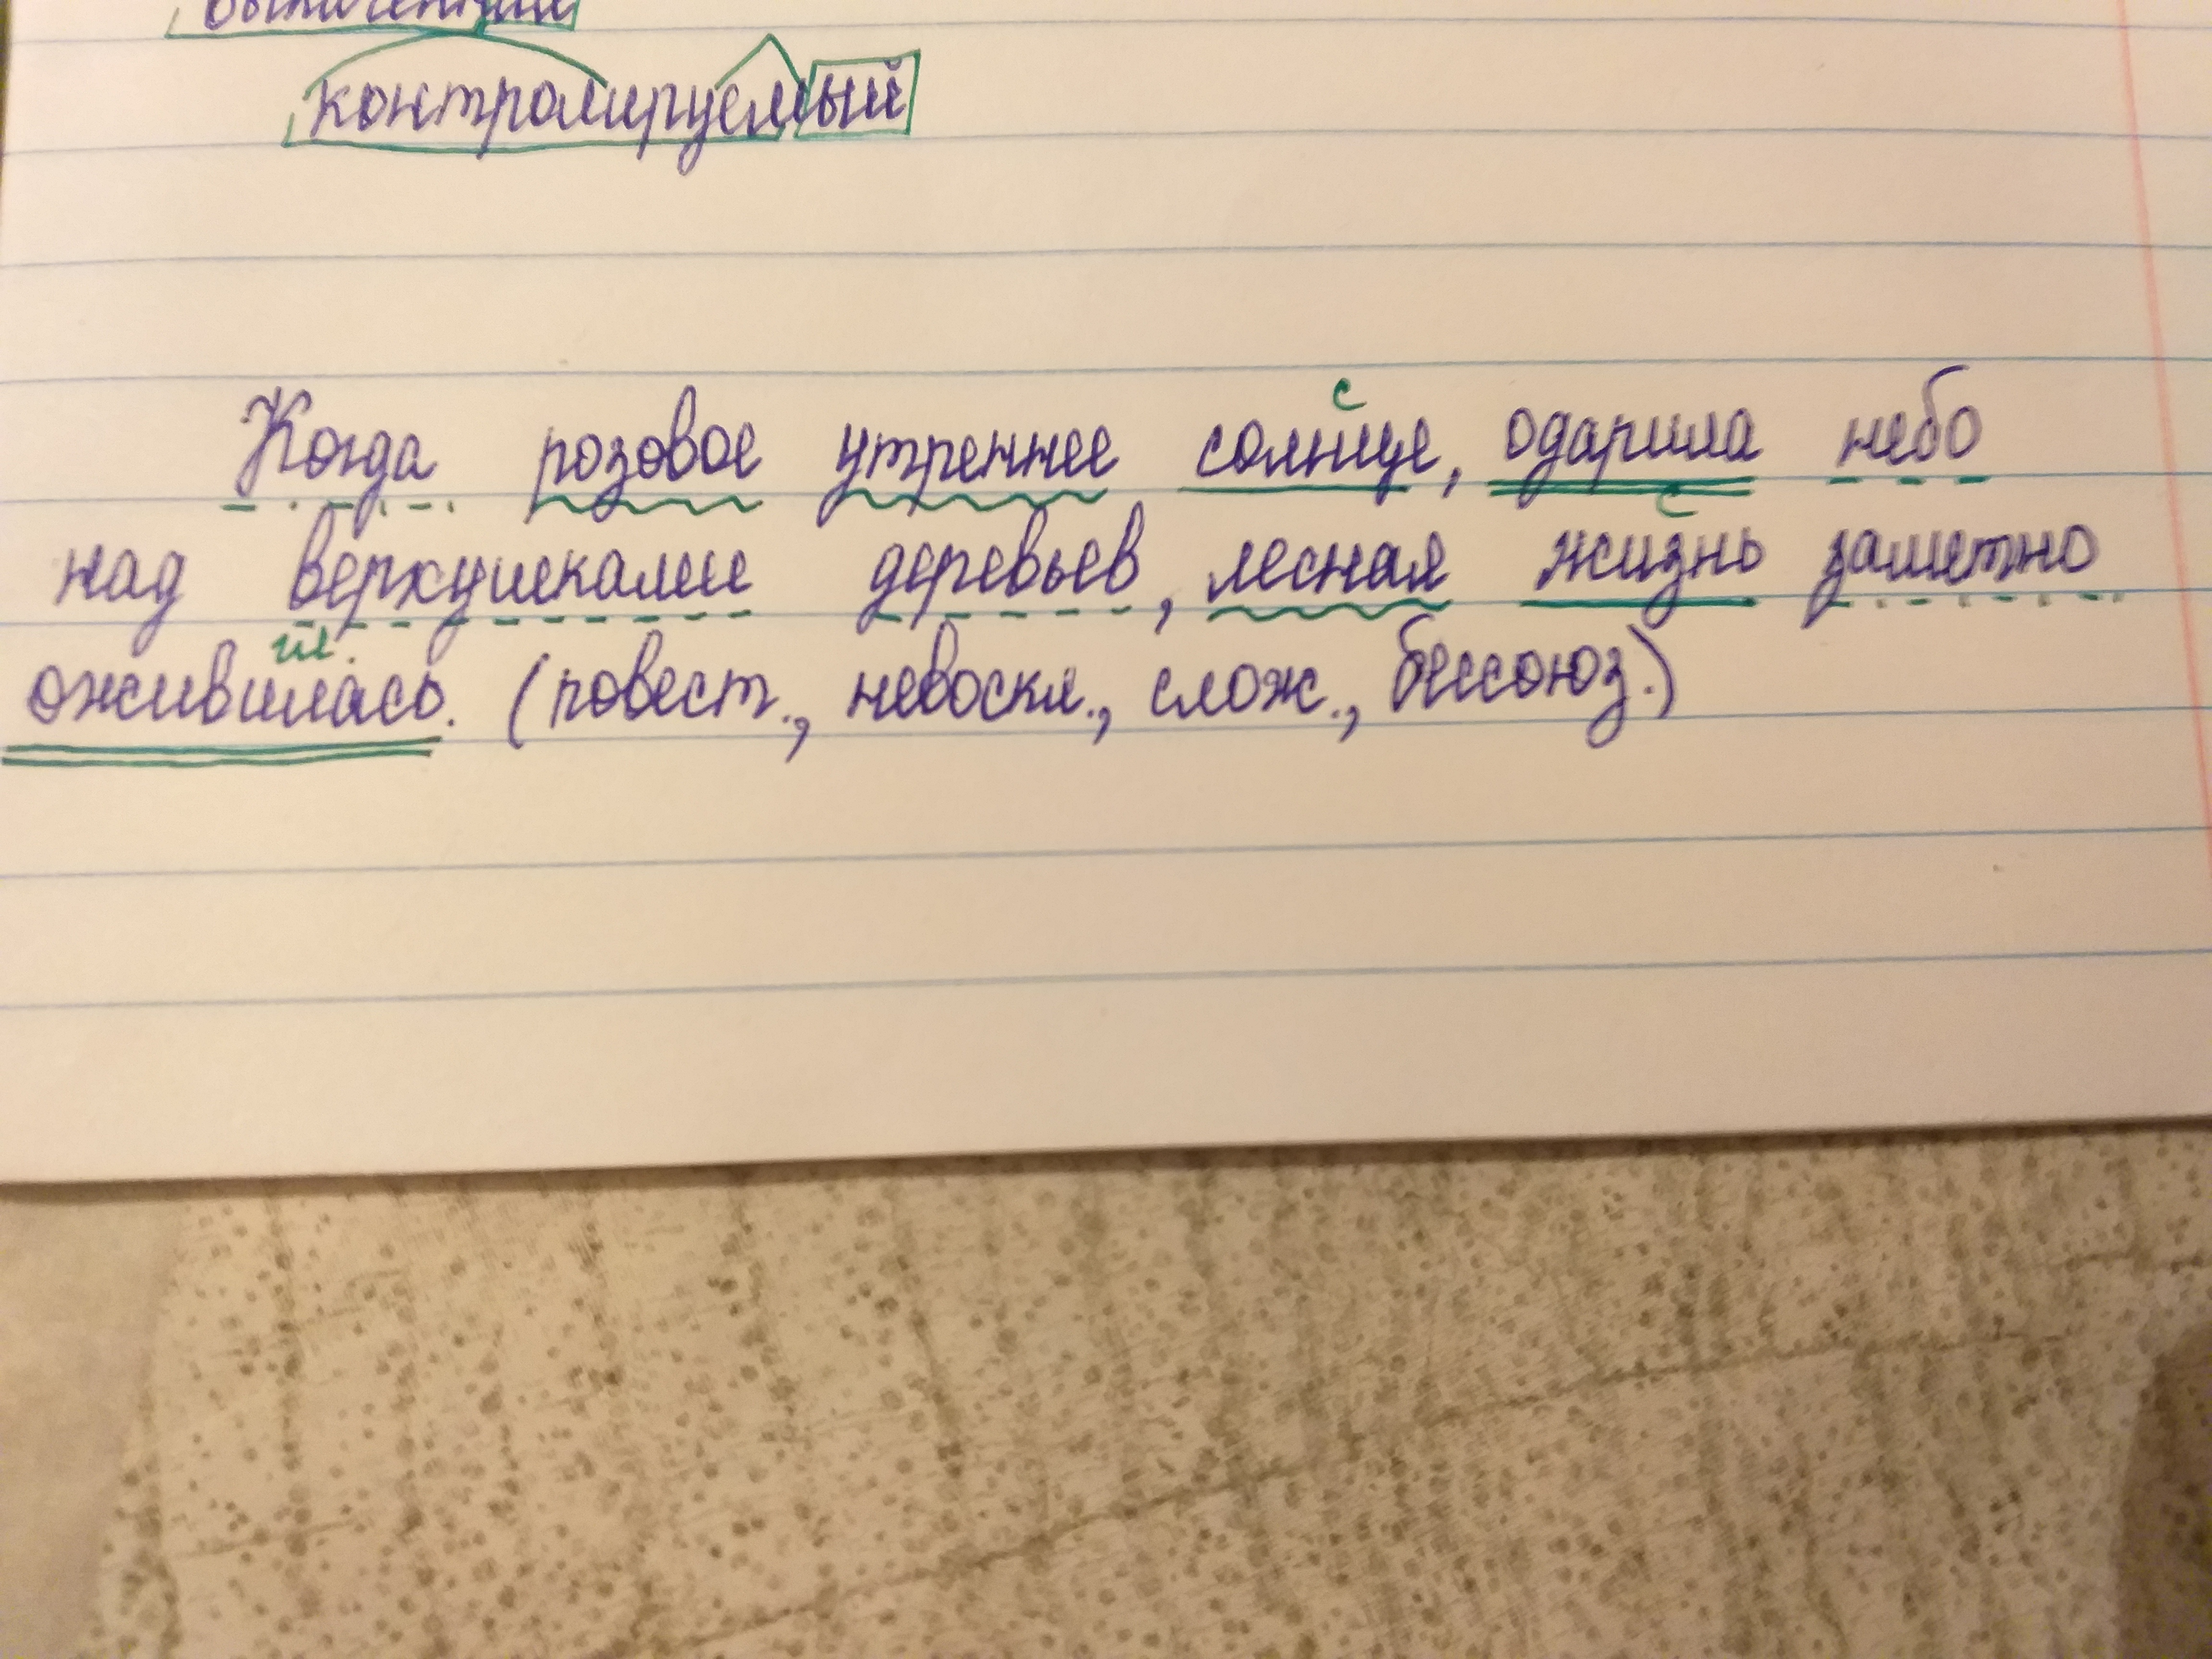 контролируемый
с
Когда розовое утреннее солнце, одарила небо
с
над верхушками деревьев, лесная жизнь заметно
гл.
оживилась. (повест., невоскл., слож., бессоюз.)